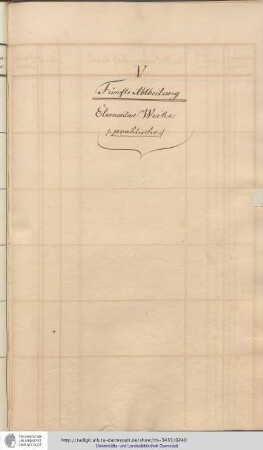 V
Fünfte Abtheilung
Elementar-Werke
(praktische)
TECHNISCHE
UNIVERSITÄT
DARMSTADT
http://tudigit.ulb.tu-darmstadt.de/show/Hs-3433/0240
Universitäts- und Landesbibliothek Darmstadt